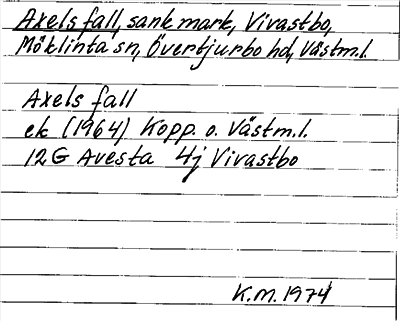 Axels fall, sank mark, Vivastbo,
Möklinta sn, Övertjurbo hd, Västm.l.
Axels fall
ek (1964) Kopp. o. Västm.l.
12G Avesta 4j Vivastbo
K.M. 1974